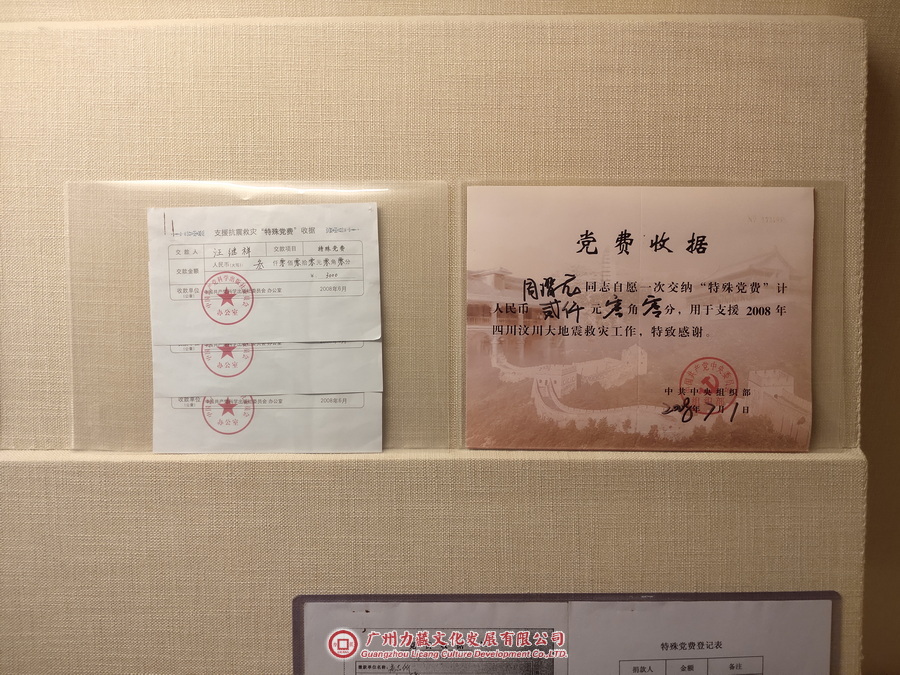 支援抗震救灾“特殊党费”收据
交款人 汪继祥 交款项目 特殊党费
交款金额 人民币（大写） 叁仟零佰零拾零元零角零分
￥ 3000
收款单位 中国共产党科学出版社委员会办公室 2008年6月
（公章）
办公室
办公室
收款单位 2008年6月
（公章）
办公室
党费收据
同志自愿一次交纳“特殊党费”计
人民币 贰仟 元零角零分，用于支援 2008 年
四川汶川大地震救灾工作，特致感谢。
中共中央组织部
2008年7月1日
特殊党费登记表
捐款人 金额 备注
广州力藏文化发展有限公司
Guangzhou Licang Culture Development Co.,LTD.